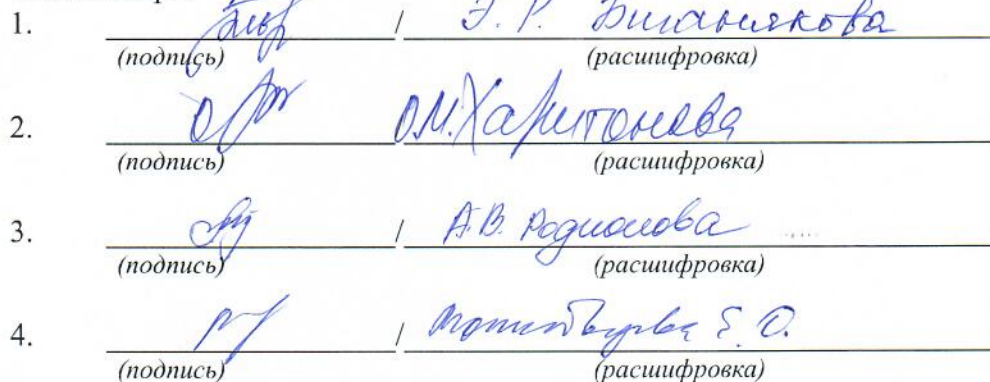 1. / Э. Р.
(подпись) (расшифровка)
2. О.М. Харитонова
(подпись) (расшифровка)
3. / А.В. Родионова
(подпись) (расшифровка)
4. / Е. О.
(подпись) (расшифровка)